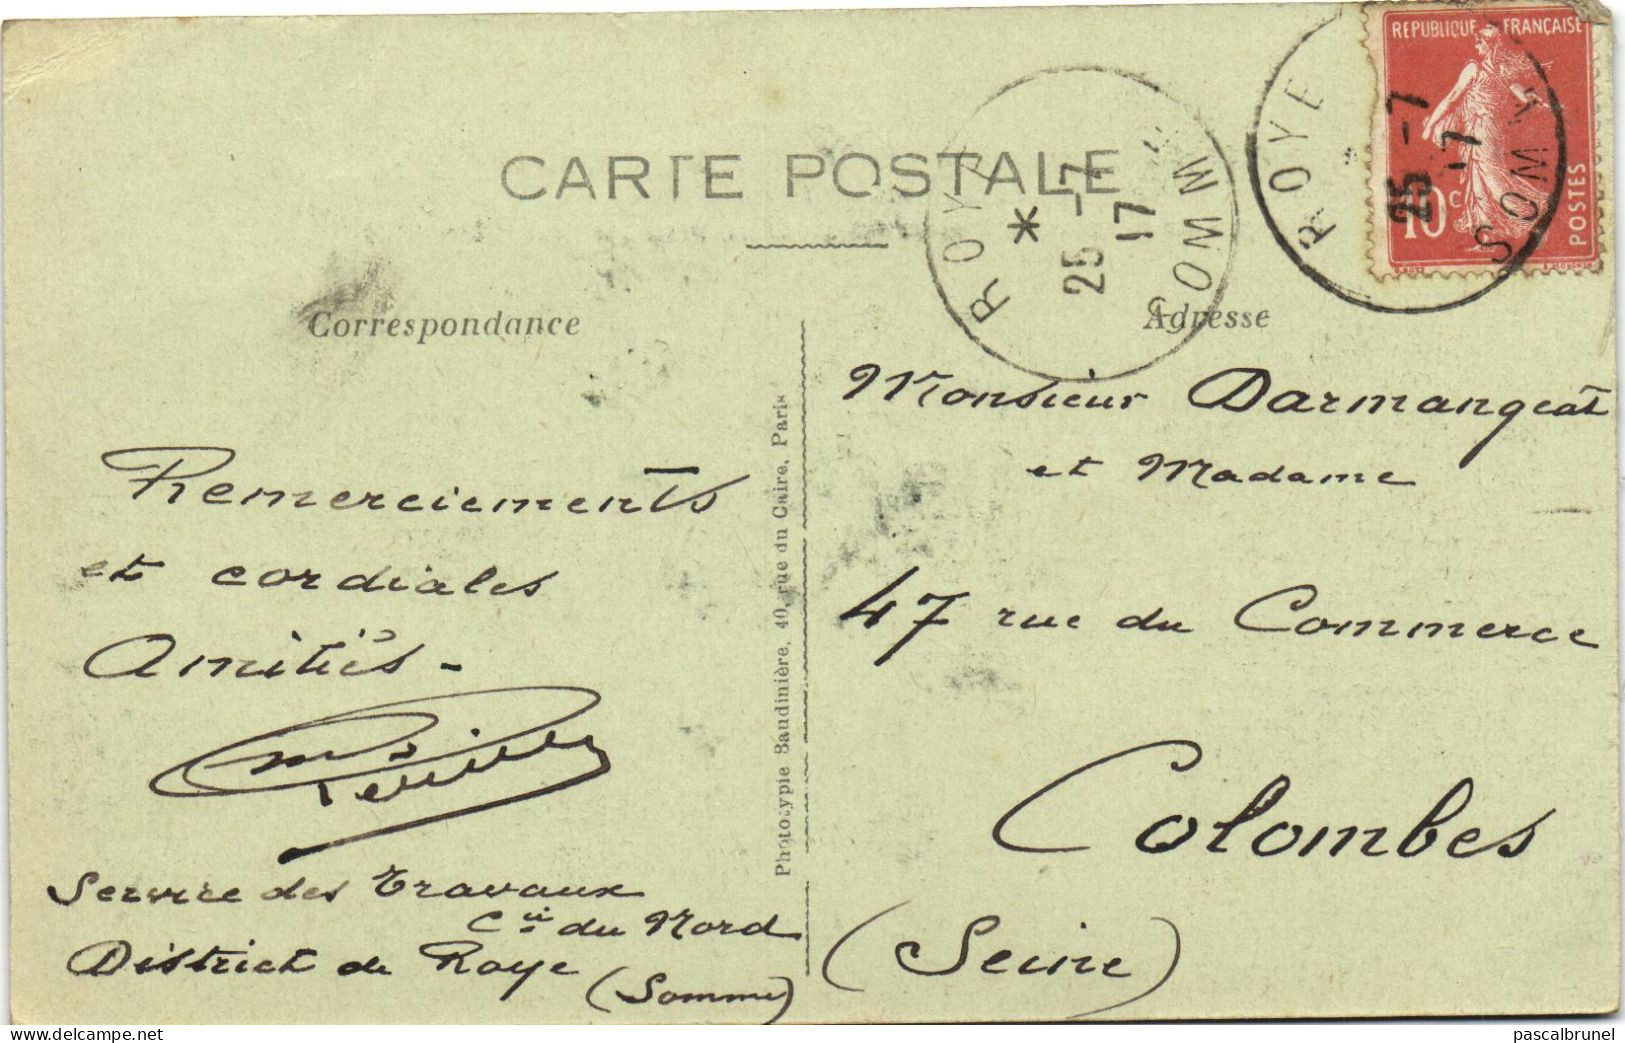 CARTE POSTALE
REPUBLIQUE FRANÇAISE
10 c
POSTES
ROYE
25 -7
17
SOMME
ROYE
25 -7
17
SOMME
Correspondance
Adresse
Remerciements
et cordiales
Amitiés -
Service des Travaux
Cie du Nord
District de Roye
(Somme)
Phototypie Baudinière, 40, rue du Caire, Paris
Monsieur Darmangeat
et Madame
47 rue du Commerce
Colombes
(Seine)
www.delcampe.net
pascalbrunel